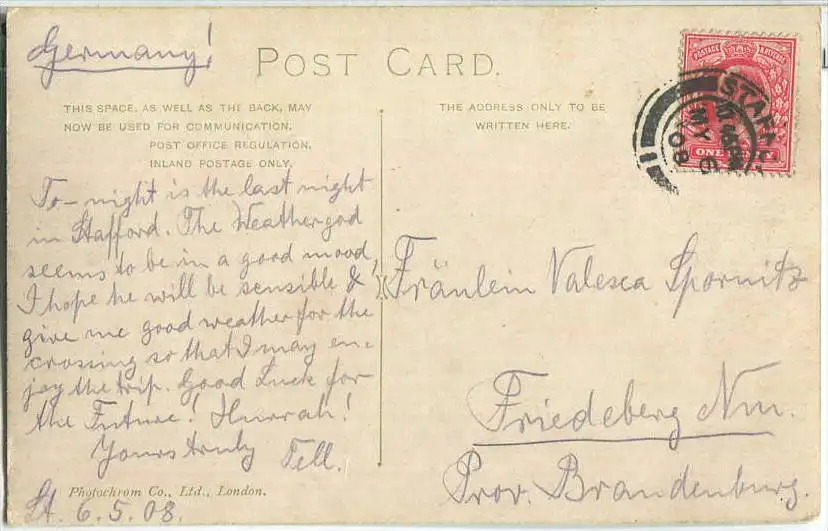 Germany!
POST CARD.
THIS SPACE, AS WELL AS THE BACK, MAY
NOW BE USED FOR COMMUNICATION.
POST OFFICE REGULATION.
INLAND POSTAGE ONLY.
THE ADDRESS ONLY TO BE
WRITTEN HERE.
POSTAGE & REVENUE
ONE PENNY
MY 6
08
To-night is the last night
in Stafford. The Weathergod
seems to be in a good mood,
I hope he will be sensible &
give me good weather for the
crossing so that I may en-
joy the trip. Good Luck for
the Future! Hurrah!
Yours truly
Tell.
Photochrom Co., Ltd., London.
St. 6.5.08.
Fräulein Valesca Spornitz
Friedeberg Nm.
Prov. Brandenburg.